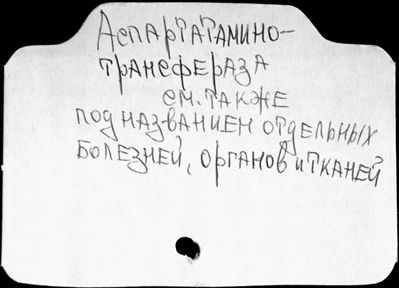 Аспартатамино-
трансфераза
см. также
под названием отдельных
болезней, органов и тканей